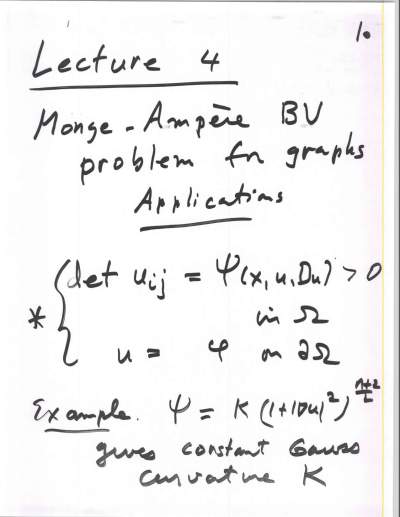 1.
Lecture 4
Monge-Ampère BV
problem for graphs
Applications
* { det u_ij = Ψ(x, u, Du) > 0
in Ω
u = φ on ∂Ω
Example. Ψ = K (1+|Du|²)^((n+2)/2)
gives constant Gauss
curvature K